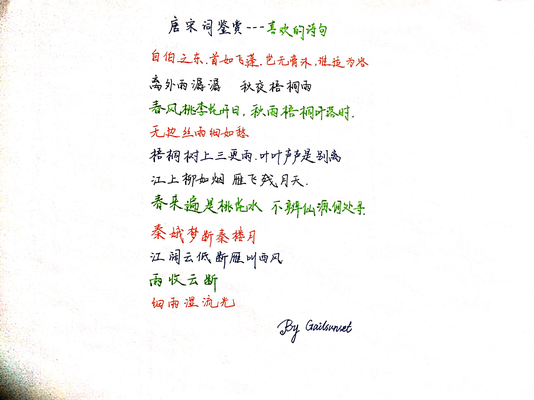 唐宋词鉴赏---喜欢的诗句
自伯之东.首如飞蓬.岂无膏沐.谁适为容
帘外雨潺潺 秋夜梧桐雨
春风桃李花开日,秋雨梧桐叶落时.
无边丝雨细如愁
梧桐树上三更雨.叶叶声声是别离
江上柳如烟 雁飞残月天.
春来遍是桃花水 不辨仙源何处寻
秦娥梦断秦楼月
江阔云低断雁叫西风
雨收云断
细雨湿流光
By Gailsunset